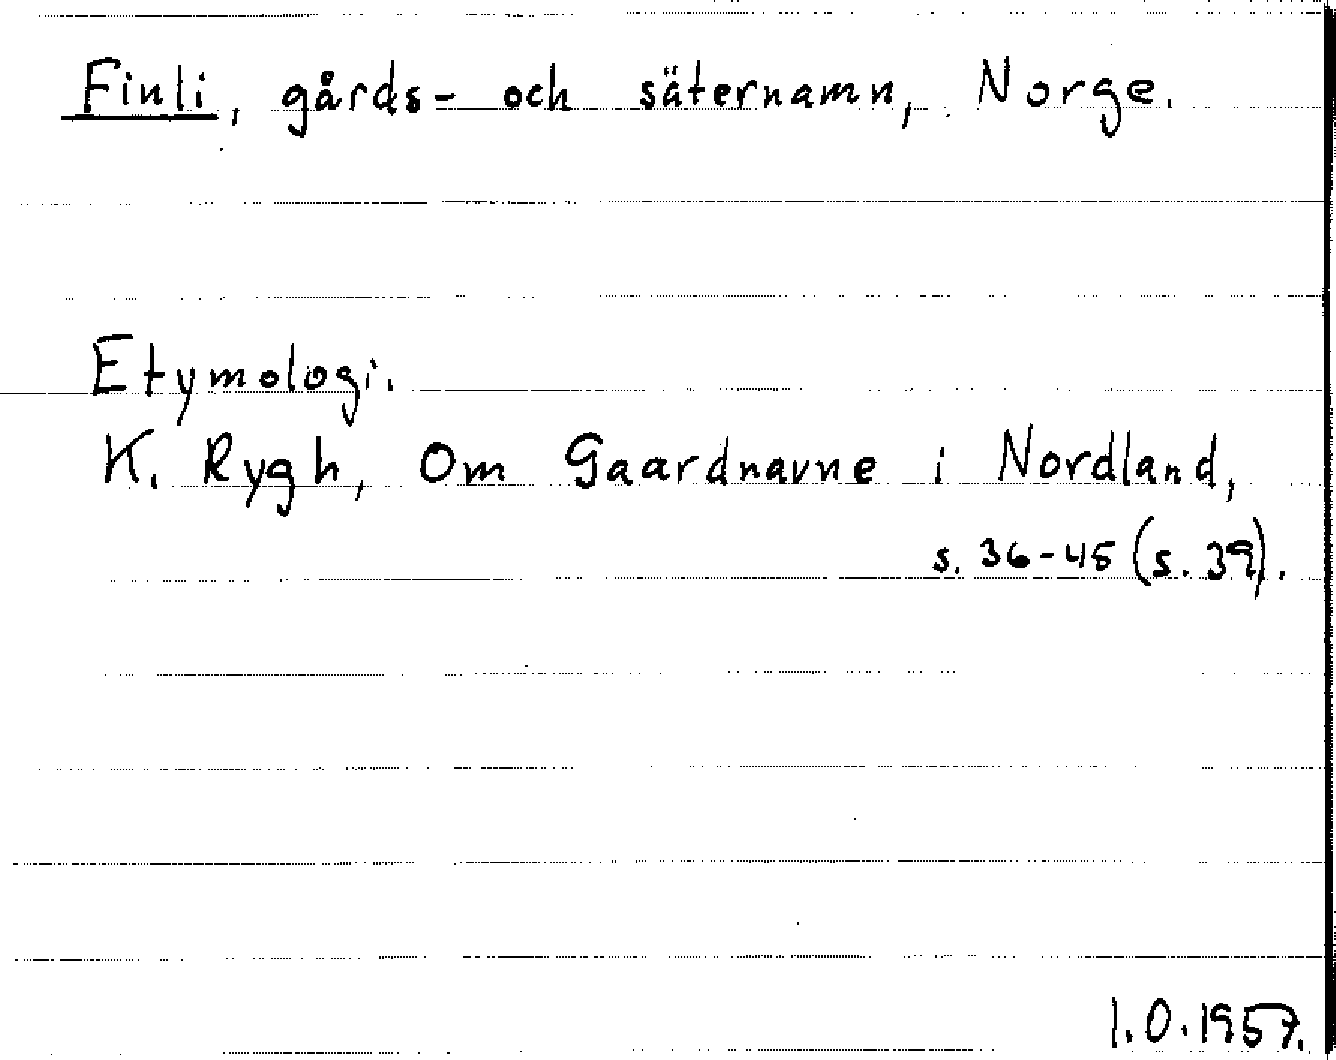 Finli, gårds- och säternamn, Norge.
Etymologi.
K. Rygh, Om Gaardnavne i Nordland,
s. 36-45 (s. 39).
I.O. 1957.